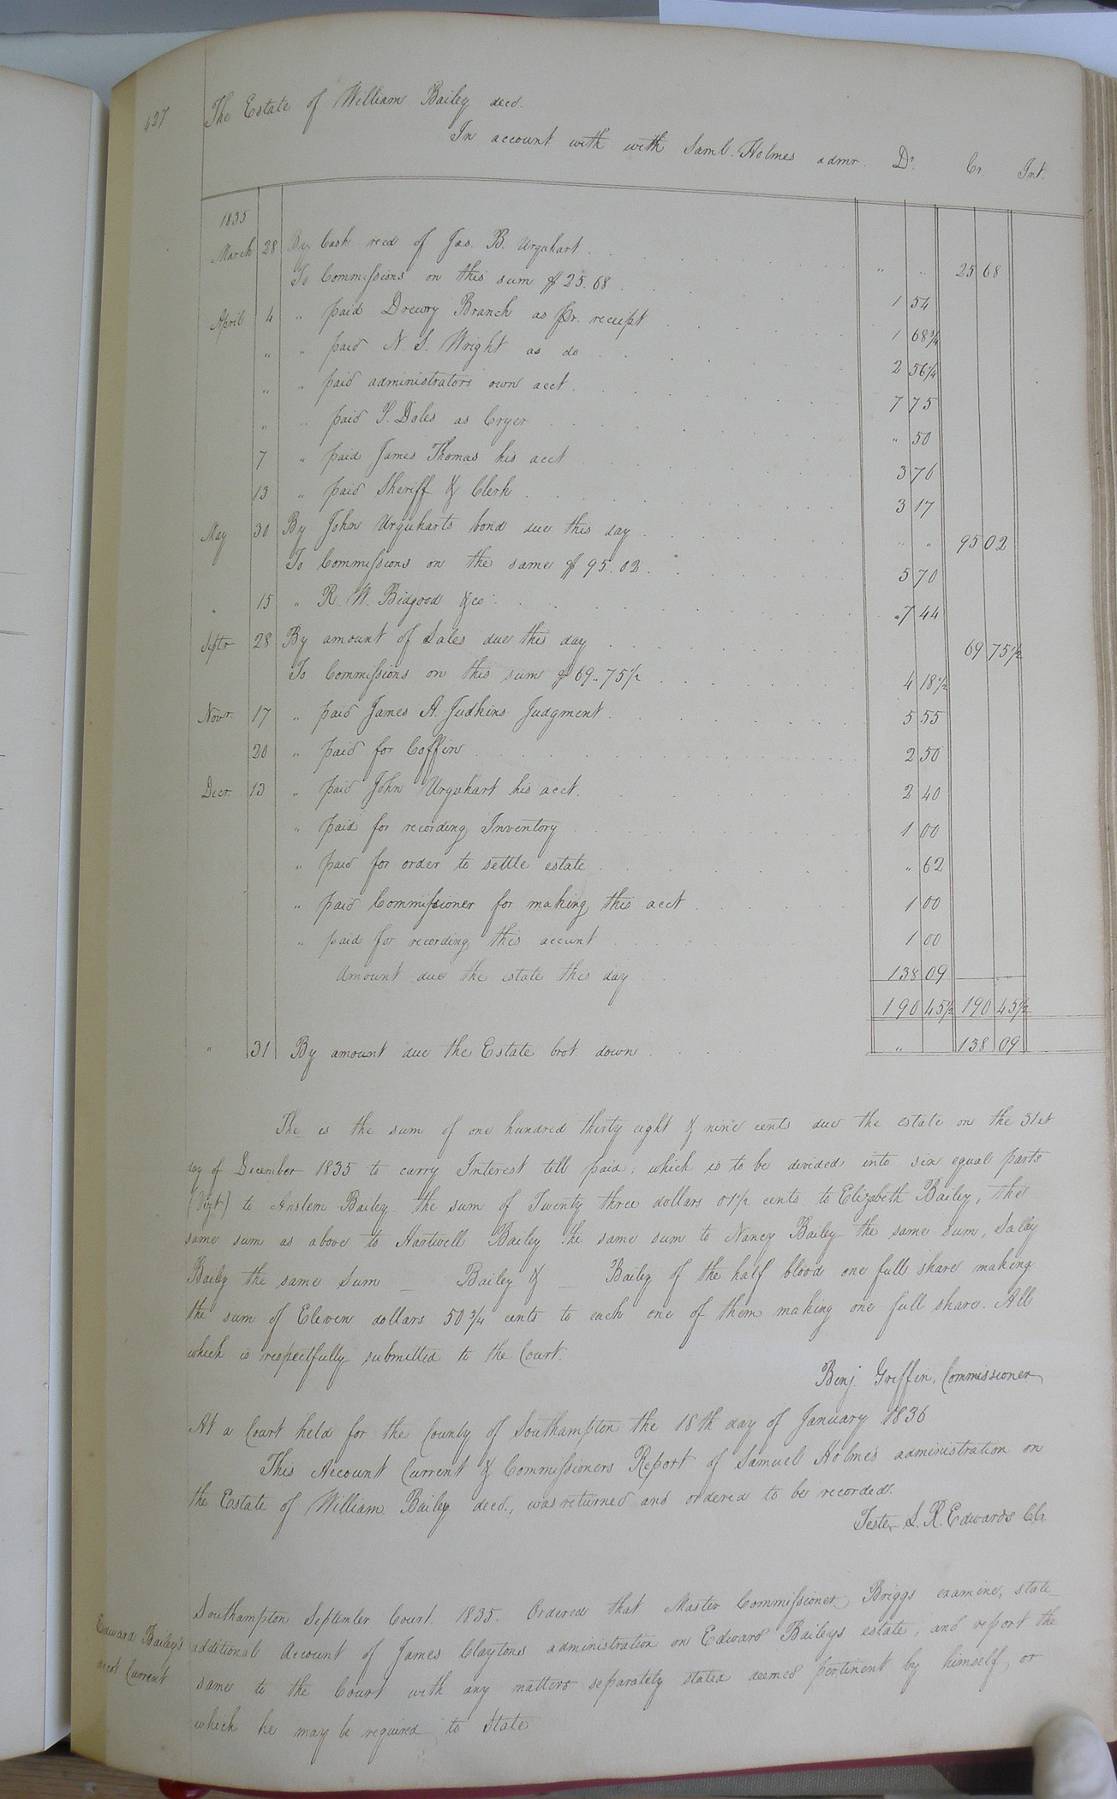 427 The Estate of William Bailey decd.
In account with with Saml. Holmes admr. Dr. Cr Int.
1835
March 28 By Cash recd of Jas. B. Urquhart " " 25 68
To Commissions on this sum $25.68 1 54
April 4 " paid Drewry Branch as pr. receipt 1 68 3/4
" " paid N S. Wright as do 2 56 1/4
" " paid administrators own acct. 7 75
" " paid P. Doles as Cryer " 50
7 " paid James Thomas his acct 3 76
13 " paid Sheriff & Clerk 3 17
May 30 By John Urquharts bond due this day " " 95 02
To Commissions on the same $95.02 5 70
" 15 " R. W. Bidgood &co 7 44
Septr 28 By amount of Sales due this day 69 75 1/2
To Commissions on this sum $69.75 1/2 4 18 1/2
Novr. 17 " paid James A. Judkins Judgment 5 55
20 " paid for Coffin 2 50
Decr. 13 " paid John Urquhart his acct. 2 40
" paid for recording Inventory 1 00
" paid for order to settle estate " 62
" paid Commissioner for making this acct 1 00
" paid for recording this account 1 00
Amount due the estate this day 138 09
190 45 1/2 190 45 1/2
" 31 By amount due the Estate brot down " 138 09
The is the sum of one hundred thirty eight & nine cents due the estate on the 31st
day of December 1835 to carry Interest till paid, which is to be divided into six equal parts
(Vizt) to Anslem Bailey the sum of Twenty three dollars 01 1/2 cents to Elizabeth Bailey, the
same sum as above to Hartwell Bailey the same sum to Nancy Bailey the same sum, Salley
Bailey the same sum _ Bailey & _ Bailey of the half blood one full share making
the sum of Eleven dollars 50 3/4 cents to each one of them making one full share. All
which is respectfully submitted to the Court.
Benj. Griffin, Commissioner
At a Court held for the County of Southampton the 18th day of January 1836
This Account Current & Commissioners Report of Samuel Holmes administration on
the Estate of William Bailey decd., was returned and ordered to be recorded.
Teste, L. R. Edwards Clk.
Edward Bailey's
acct Current
Southampton September Court. 1835. Ordered that Master Commissioner Briggs examine, state
additional Account of James Claytons administration on Edward Baileys estate, and report the
same to the Court with any matters separately stated deemed pertinent by himself, or
which he may be required to State